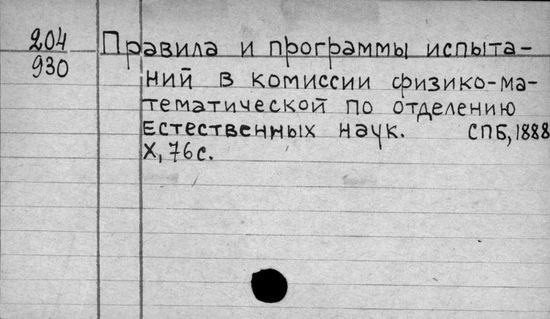 204
930
Правила и программы испыта-
ний в комиссии физико-ма-
тематической по отделению
Естественных наук. СПБ, 1888
X, 76 с.